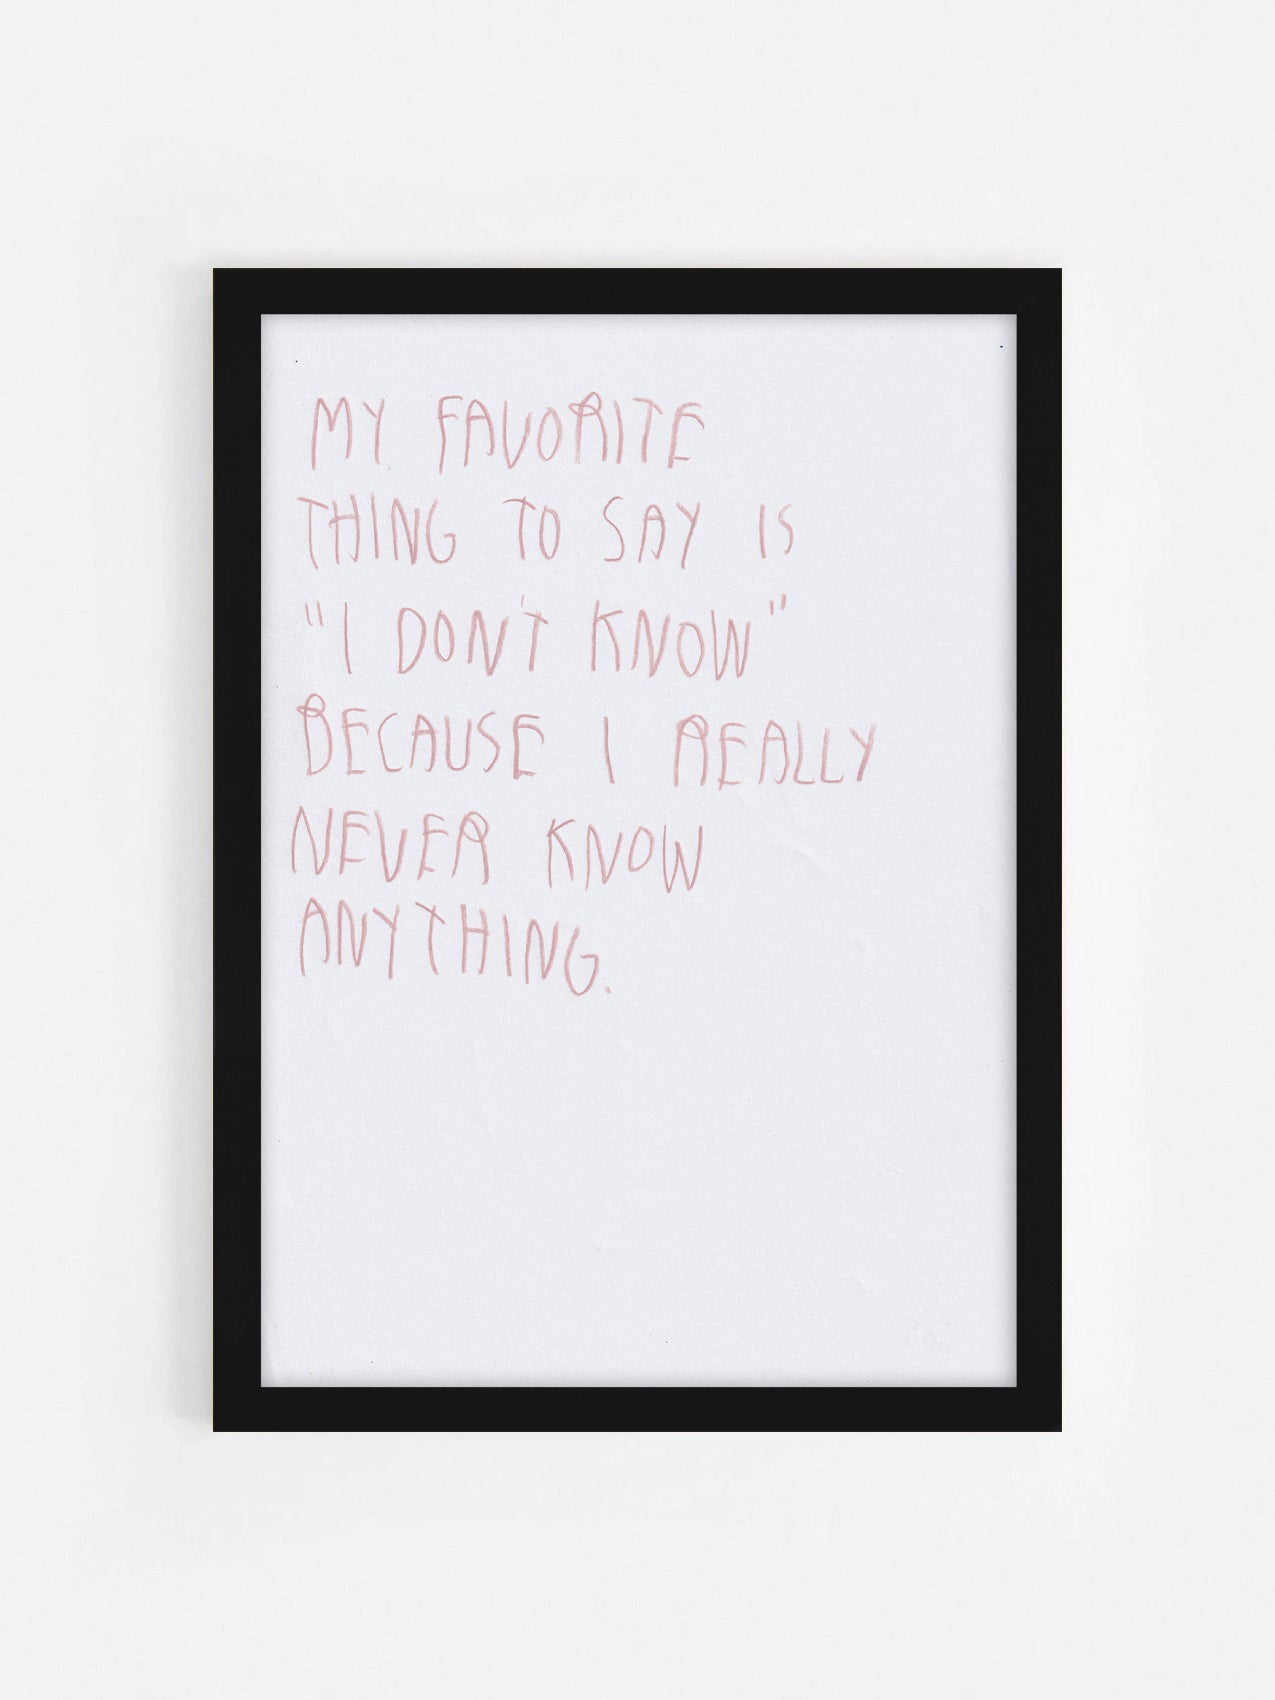 MY FAVORITE
THING TO SAY IS
"I DON'T KNOW"
BECAUSE I REALLY
NEVER KNOW
ANYTHING.